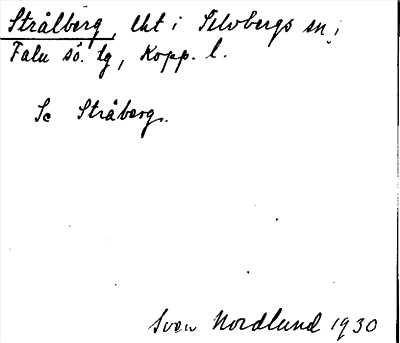 Strålberg, lht i Silvbergs sn,
Falu sö. tg, Kopp. l.
Se Stråberg.
Sven Nordlund 1930